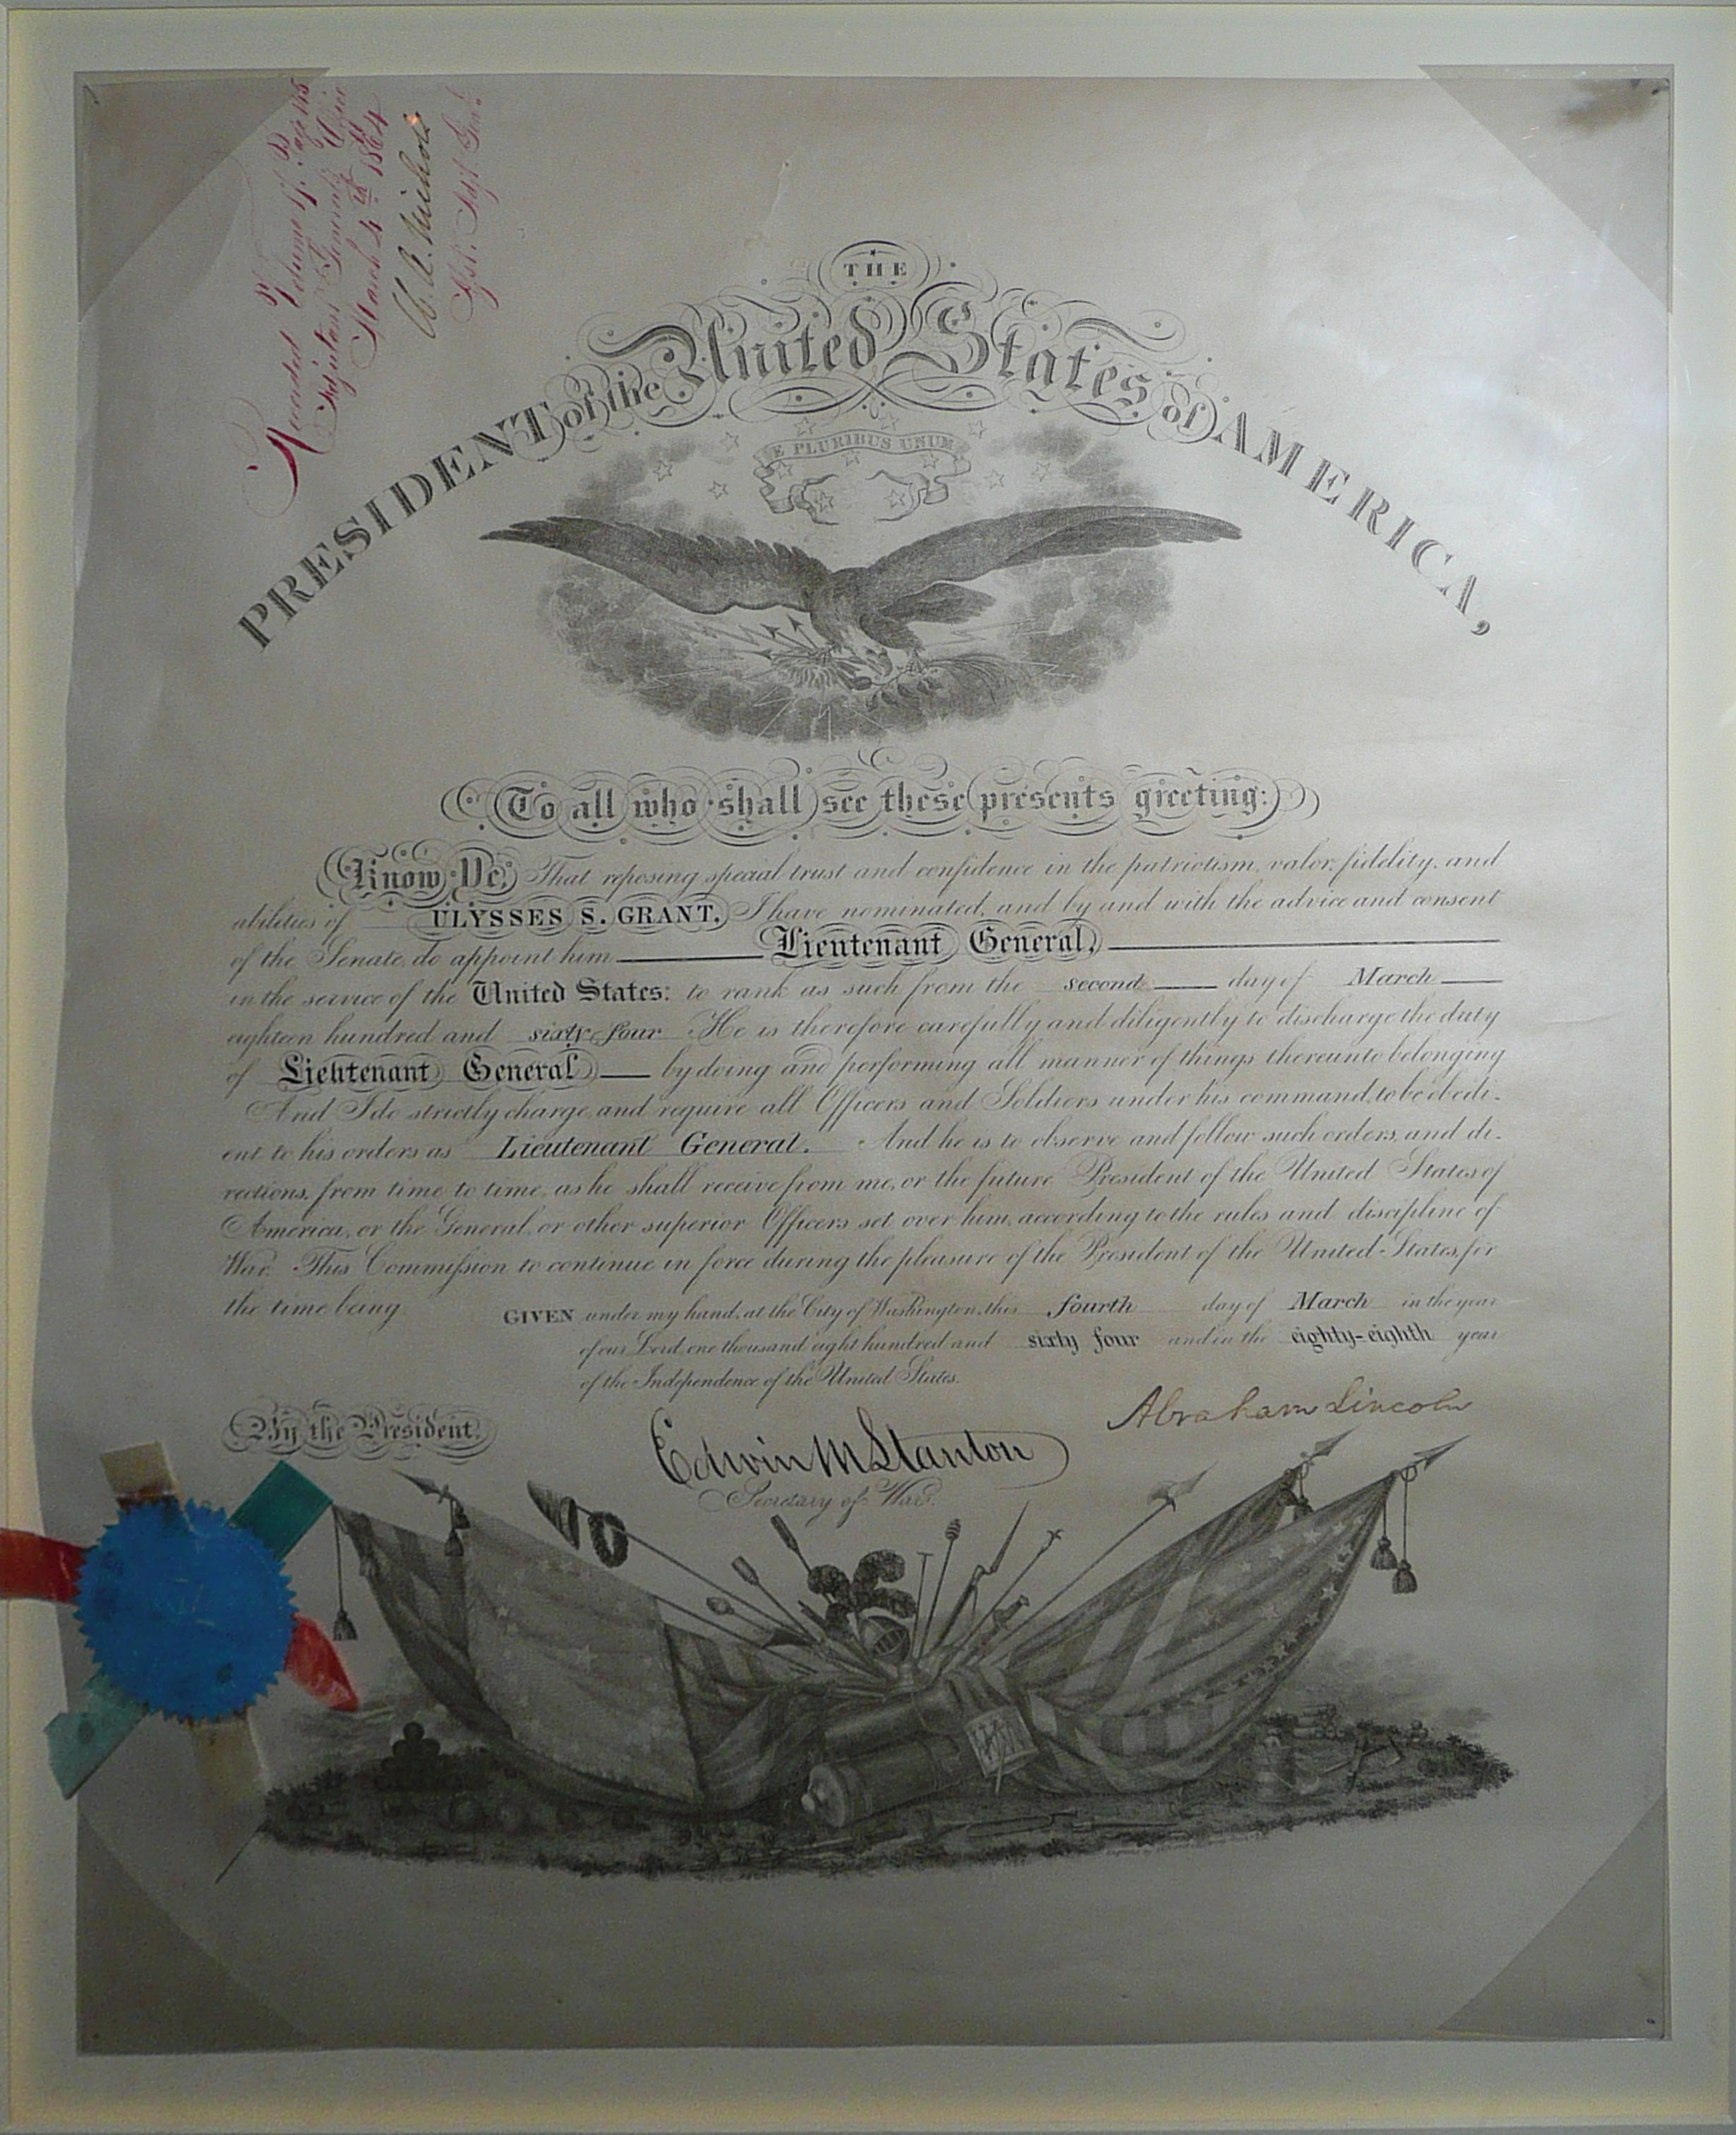 Recorded Volume Page 145
Adjutant General's Office
March 4th 1864
W. A. Nichols
Asst. Adjt. Genl.
THE
PRESIDENT of the United States of AMERICA,
E PLURIBUS UNUM
To all who shall see these presents greeting:
Know Ye, That reposing special trust and confidence in the patriotism, valor, fidelity, and
abilities of ULYSSES S. GRANT, I have nominated, and by and with the advice and consent
of the Senate, do appoint him Lieutenant General,
in the service of the United States: to rank as such from the second day of March
eighteen hundred and sixty four He is therefore carefully and diligently to discharge the duty
of Lieutenant General by doing and performing all manner of things thereunto belonging
And I do strictly charge, and require all Officers and Soldiers under his command, to be obedi-
ent to his orders as Lieutenant General. And he is to observe and follow such orders, and di-
rections, from time to time, as he shall receive from me, or the future President of the United States of
America, or the General, or other superior Officers set over him, according to the rules and discipline of
War. This Commission to continue in force during the pleasure of the President of the United States, for
the time being.
GIVEN under my hand, at the City of Washington, this fourth day of March in the year
of our Lord, one thousand eight hundred and sixty four and in the eighty-eighth year
of the Independence of the United States.
Abraham Lincoln
By the President,
Edwin M Stanton
Secretary of War.